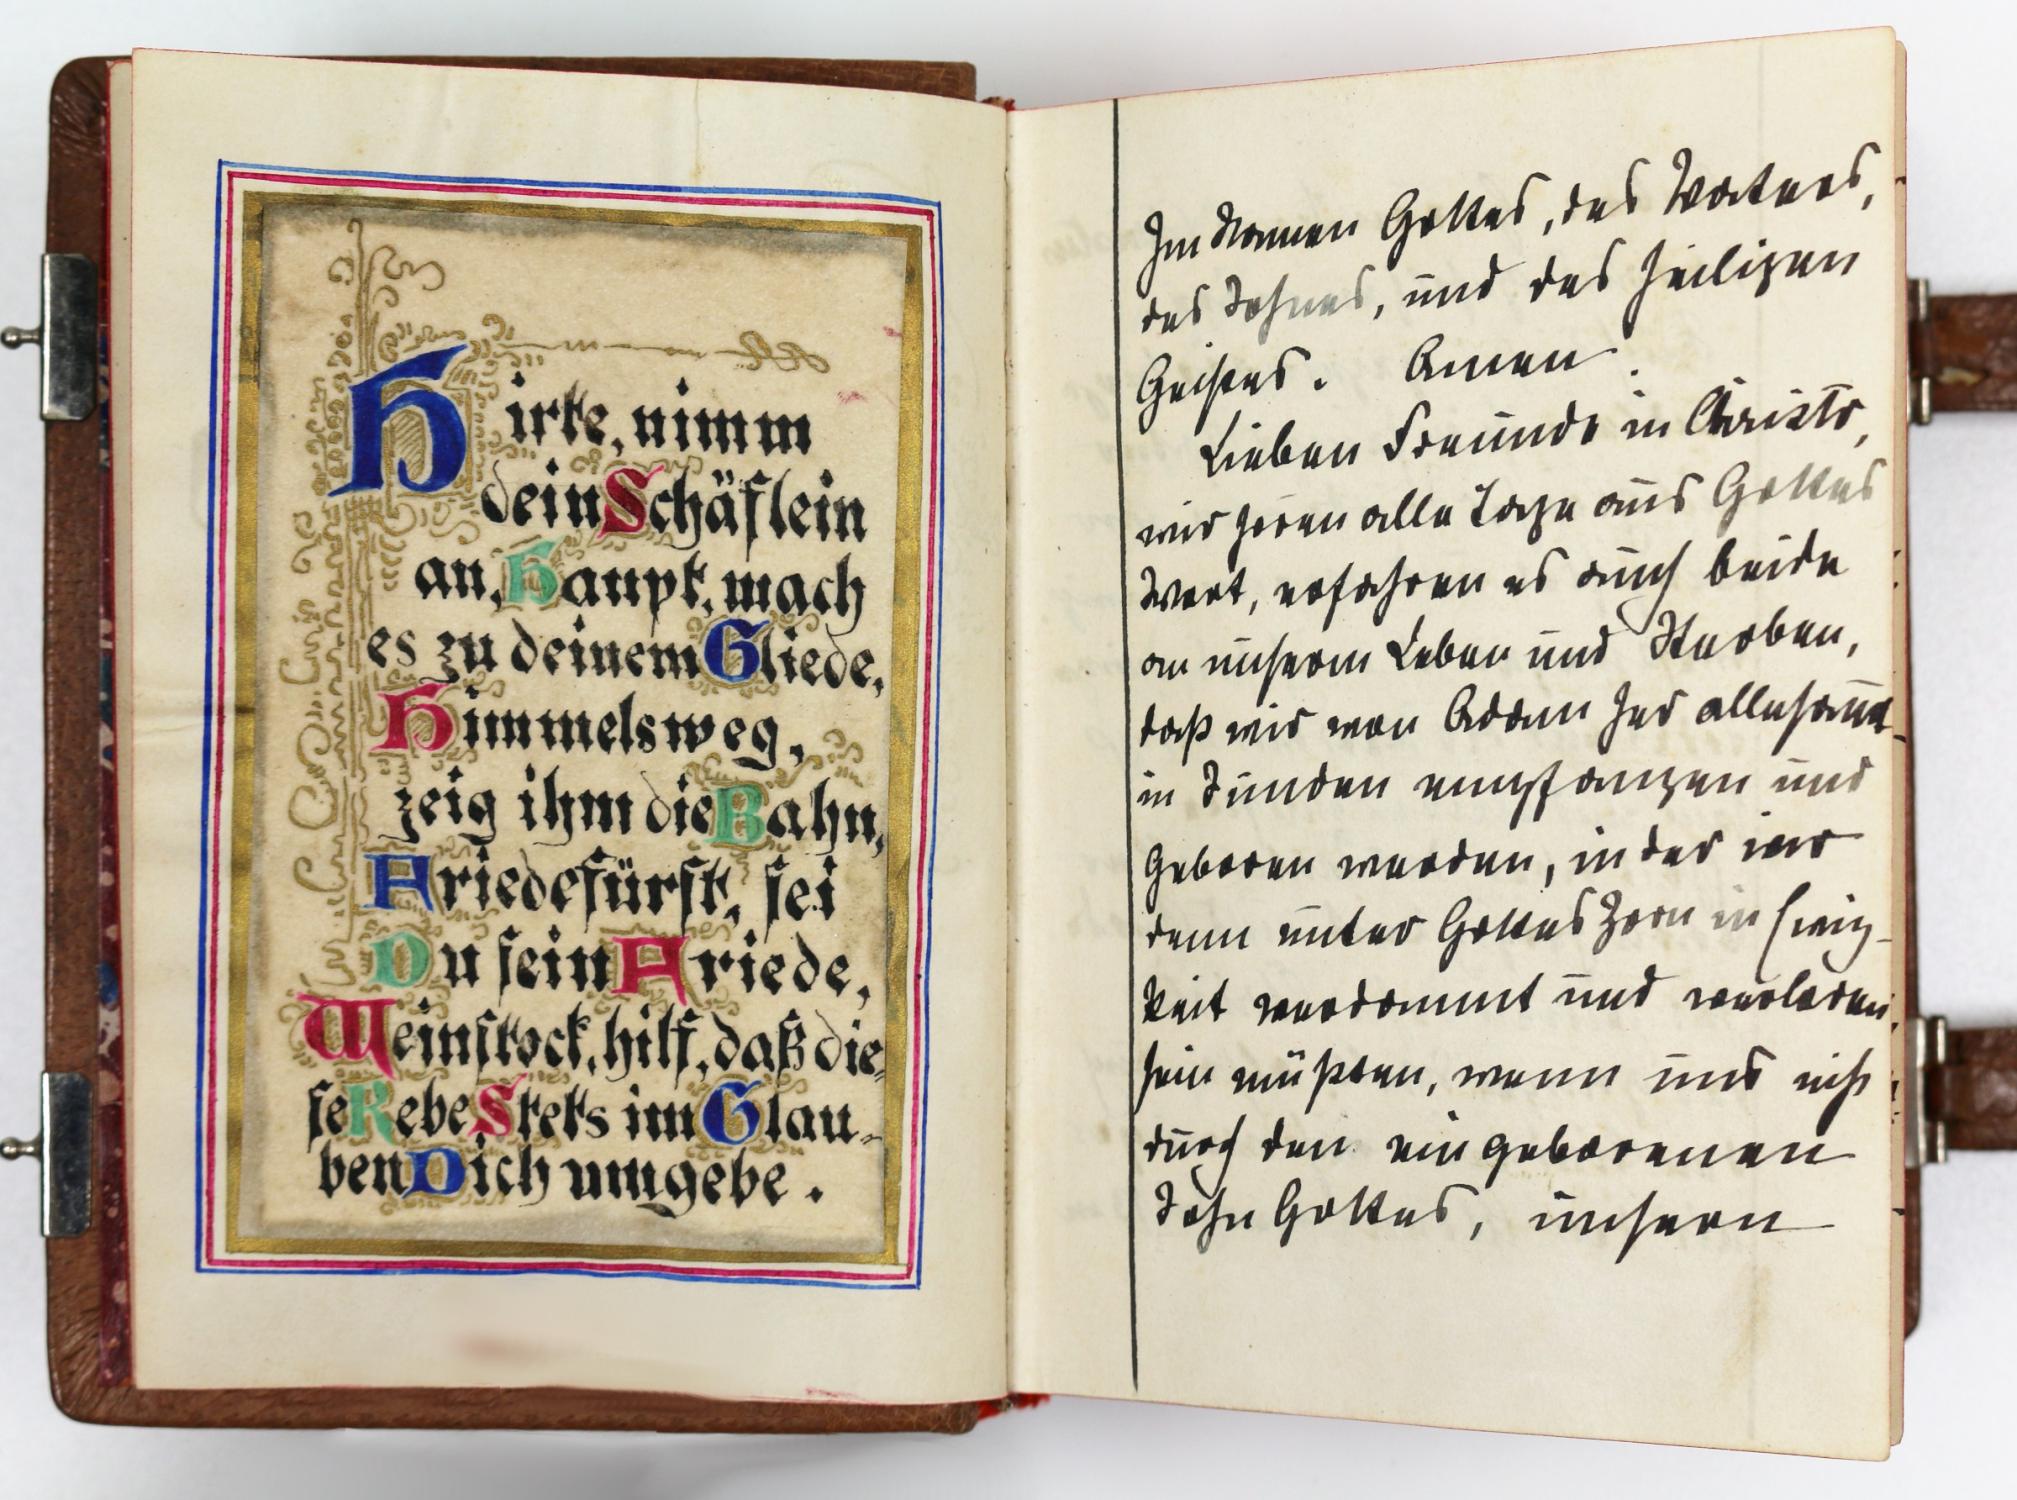 Hirte, nimm
dein Schäflein
an, Haupt, mach
es zu deinem Gliede,
Himmelsweg,
zeig ihm die Bahn,
Friedefürst, sei
Du sein Friede,
Weinstock, hilf, daß die-
se Rebe Stets im Glau-
ben Dich umgebe.
Im Namen Gottes, des Vaters,
des Sohnes, und des Heiligen
Geistes. Amen.
Lieben Freunde in Christo,
wir horen alle Tage aus Gottes
Wort, erfahren es auch beide
an unserm Leben und Sterben,
daß wir von Adam her allesamt
in Sunden empfangen und
geboren werden, in der wir
denn unter Gottes Zorn in Ewig-
keit verdammt und verloren
sein müßten, wenn uns nicht
durch den eingeborenen
Sohn Gottes, unsern